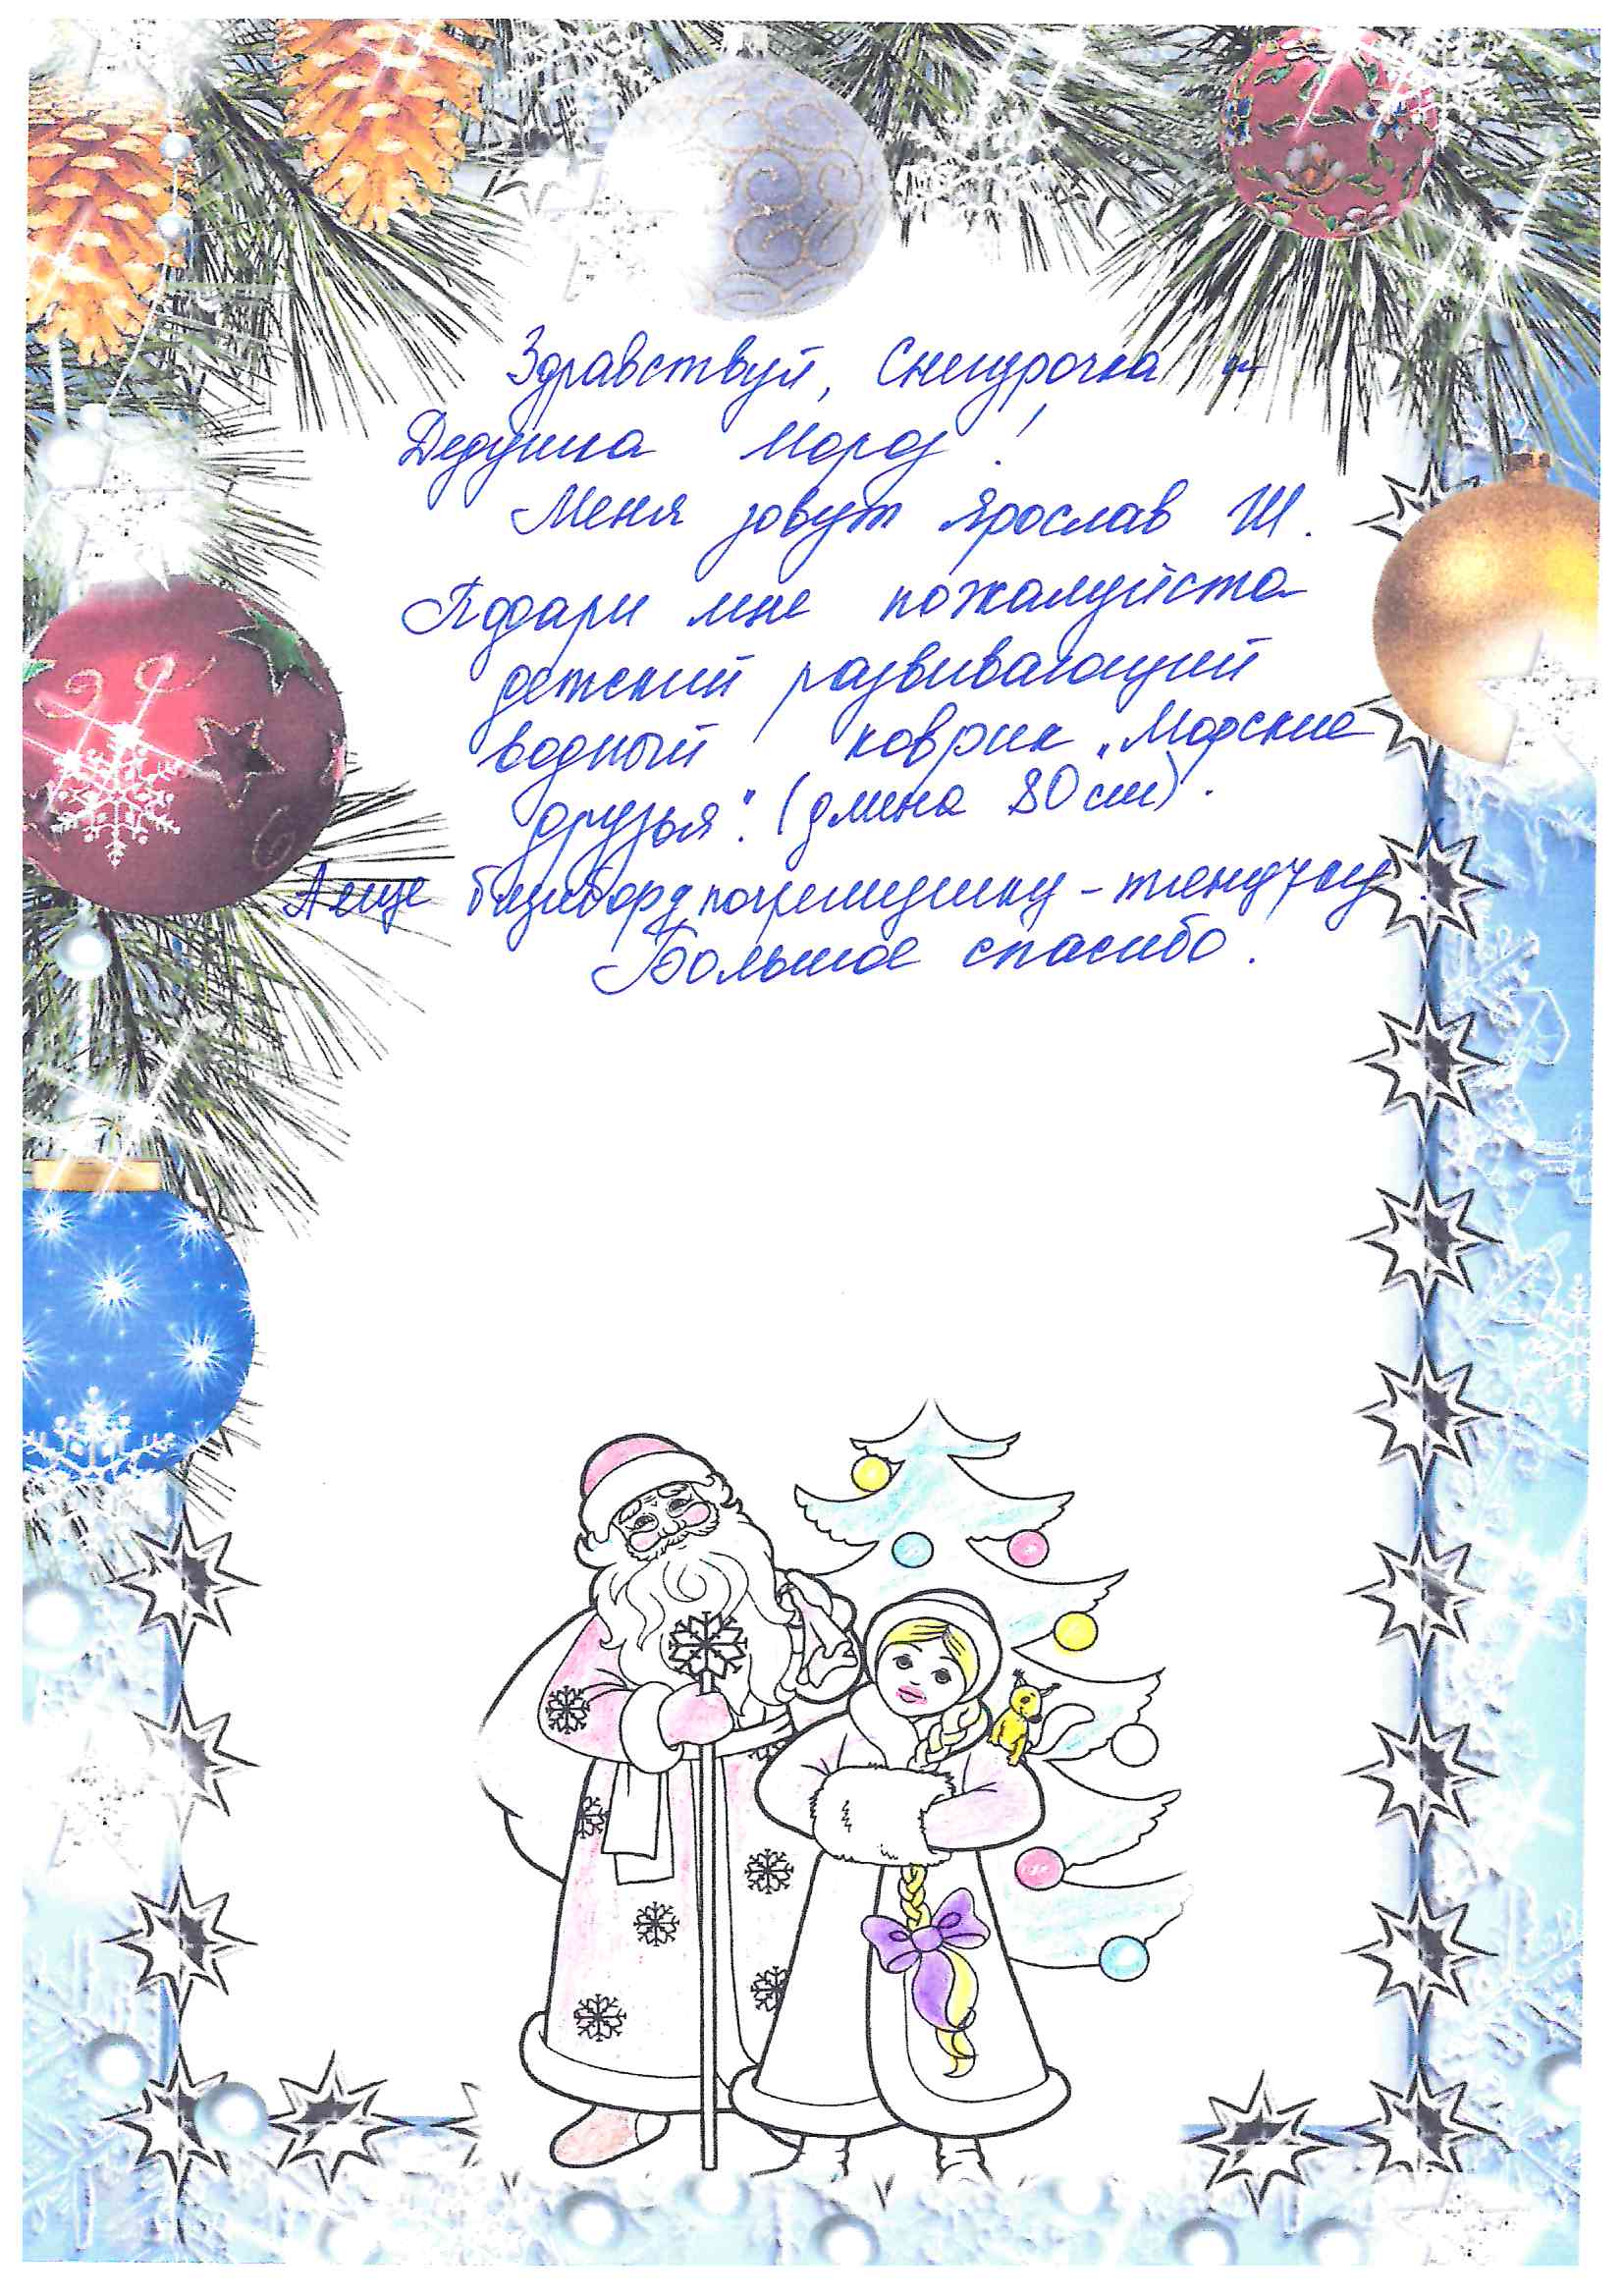 Здравствуй, Снегурочка и
Дедушка Мороз!
Меня зовут Ярослав Ш.
Подари мне пожалуйста
детский развивающий
водный коврик „Морские
друзья". (длина 80 см).
А еще бизиборд погремушку - тянучку.
Большое спасибо.